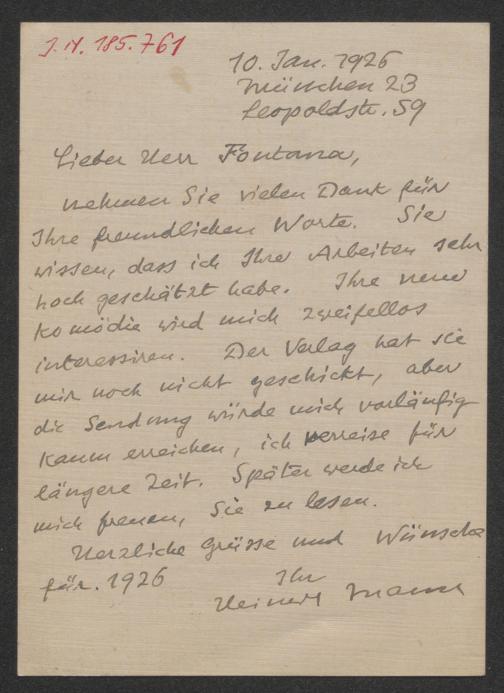 J.N. 185.761
10. Jan. 1926
München 23
Leopoldstr. 59
Lieber Herr Fontana,
nehmen Sie vielen Dank für
Ihre freundlichen Worte. Sie
wissen, dass ich Ihre Arbeiten sehr
hoch geschätzt habe. Ihre neue
Komödie wird mich zweifellos
interessiren. Der Verlag hat sie
mir noch nicht geschickt, aber
die Sendung würde mich vorläufig
kaum erreichen, ich verreise für
längere Zeit. Später werde ich
mich freuen, Sie zu lesen.
Herzliche Grüsse und Wünsche
für 1926
Ihr
Heinrich Mann